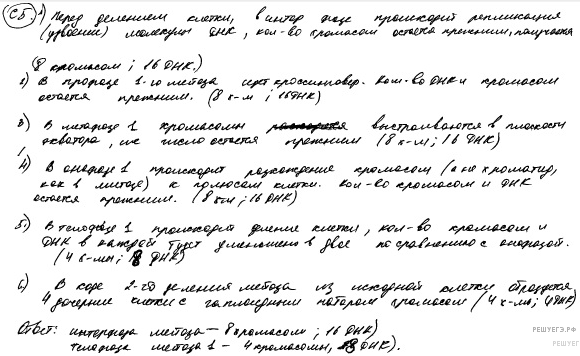 С5. 1) Перед делением клетки, в интерфазе происходит репликация
(удвоение) молекулы ДНК, кол-во хромосом остается прежним, получается
(8 хромосом ; 16 ДНК.)
2) В профазе 1-го мейоза идет кроссинговер. Кол-во ДНК и хромосом
остается прежним. (8 х-м ; 16 ДНК)
3) В метафазе 1 хромосомы выстраиваются в плоскости
экватора, их число остается прежним (8 х-м; 16 ДНК)
4) В анафазе 1 происходит расхождение хромосом (а не хроматид,
как в митозе) к полюсам клетки. Кол-во хромосом и ДНК
остается прежним. (8 хм ; 16 ДНК)
5.) В телофазе 1 происходит деление клетки, кол-во хромосом и
ДНК в каждой уменьшено в двое по сравнению с анафазой.
(4 х-мы; 8 ДНК)
6) В ходе 2-го деления мейоза из исходной клетки образуется
4 дочерние клетки с гаплоидным набором хромосом (4 х-мы; 4 ДНК)
Ответ: интерфаза мейоза — 8 хромосом ; 16 ДНК)
телофаза мейоза 1 — 4 хромосомы, 8 ДНК).
РЕШУЕГЭ.РФ
РЕШУЕГЭ.РФ